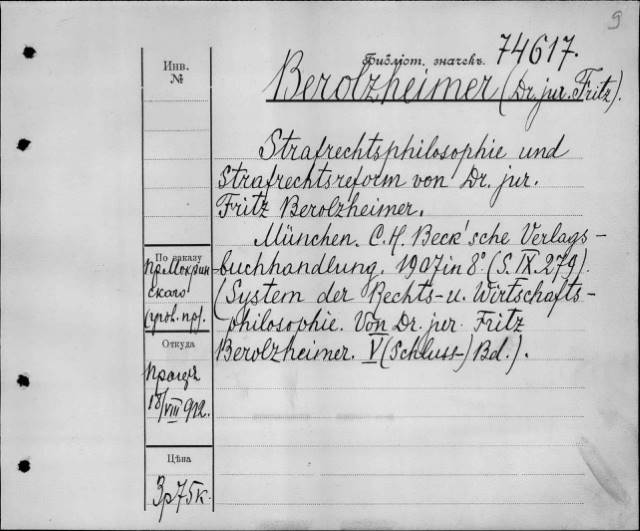 9
Библіот. значекъ. 74617.
Инв.
№
Berolzheimer (Dr. jur. Fritz).
Strafrechtsphilosophie und
Strafrechtsreform von Dr. jur.
Fritz Berolzheimer.
München. C. H. Beck'sche Verlags-
buchhandlung. 1907 in 8° (S. IX. 279).
(System der Rechts- u. Wirtschafts-
philosophie. Von Dr. jur. Fritz
Berolzheimer. V (Schluss-) Bd.).
По заказу
пр. Мокрин-
скаго
Откуда
18/VIII 912.
Цѣна
3р 75к.